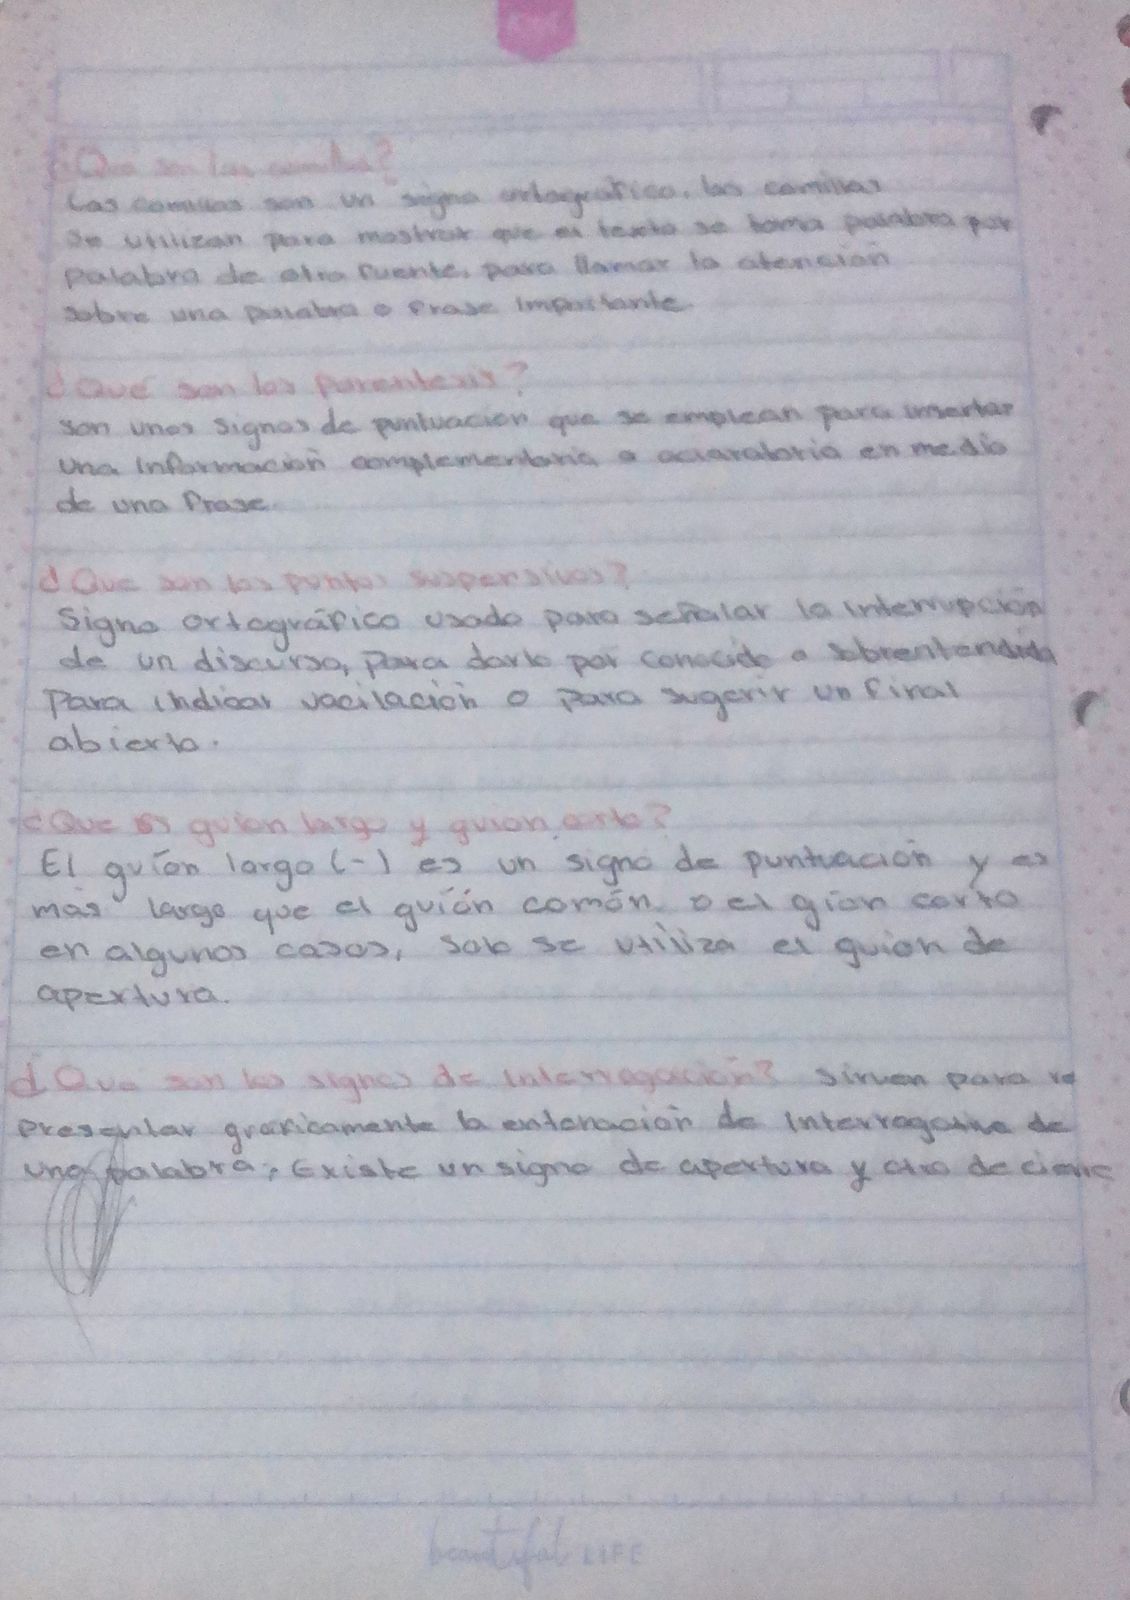 ¿Que son las comillas?
Las comillas son un signo ortográfico. las comillas
se utilizan para mostrar que el texto se toma palabra por
palabra de otra fuente, para llamar la atención
sobre una palabra o frase importante.
¿Que son los parentesis?
son unos signos de puntuación que se emplean para insertar
una información complementaria o aclaratoria en medio
de una frase.
¿Que son los puntos suspensivos?
Signo ortográfico usado para señalar la interrupción
de un discurso, para darlo por conocido o sobrentendido
para indicar vacilación o para sugerir un final
abierto.
¿Que es guion largo y guion corto?
El guíon largo (-) es un signo de puntuación y es
más largo que el guión común o el gion corto
en algunos casos, solo se utiliza el guion de
apertura.
¿Que son los signos de interrogación? sirven para re
presentar graficamente la entonación de interrogativa de
una palabra, Existe un signo de apertura y otro de cierre
beautiful LIFE